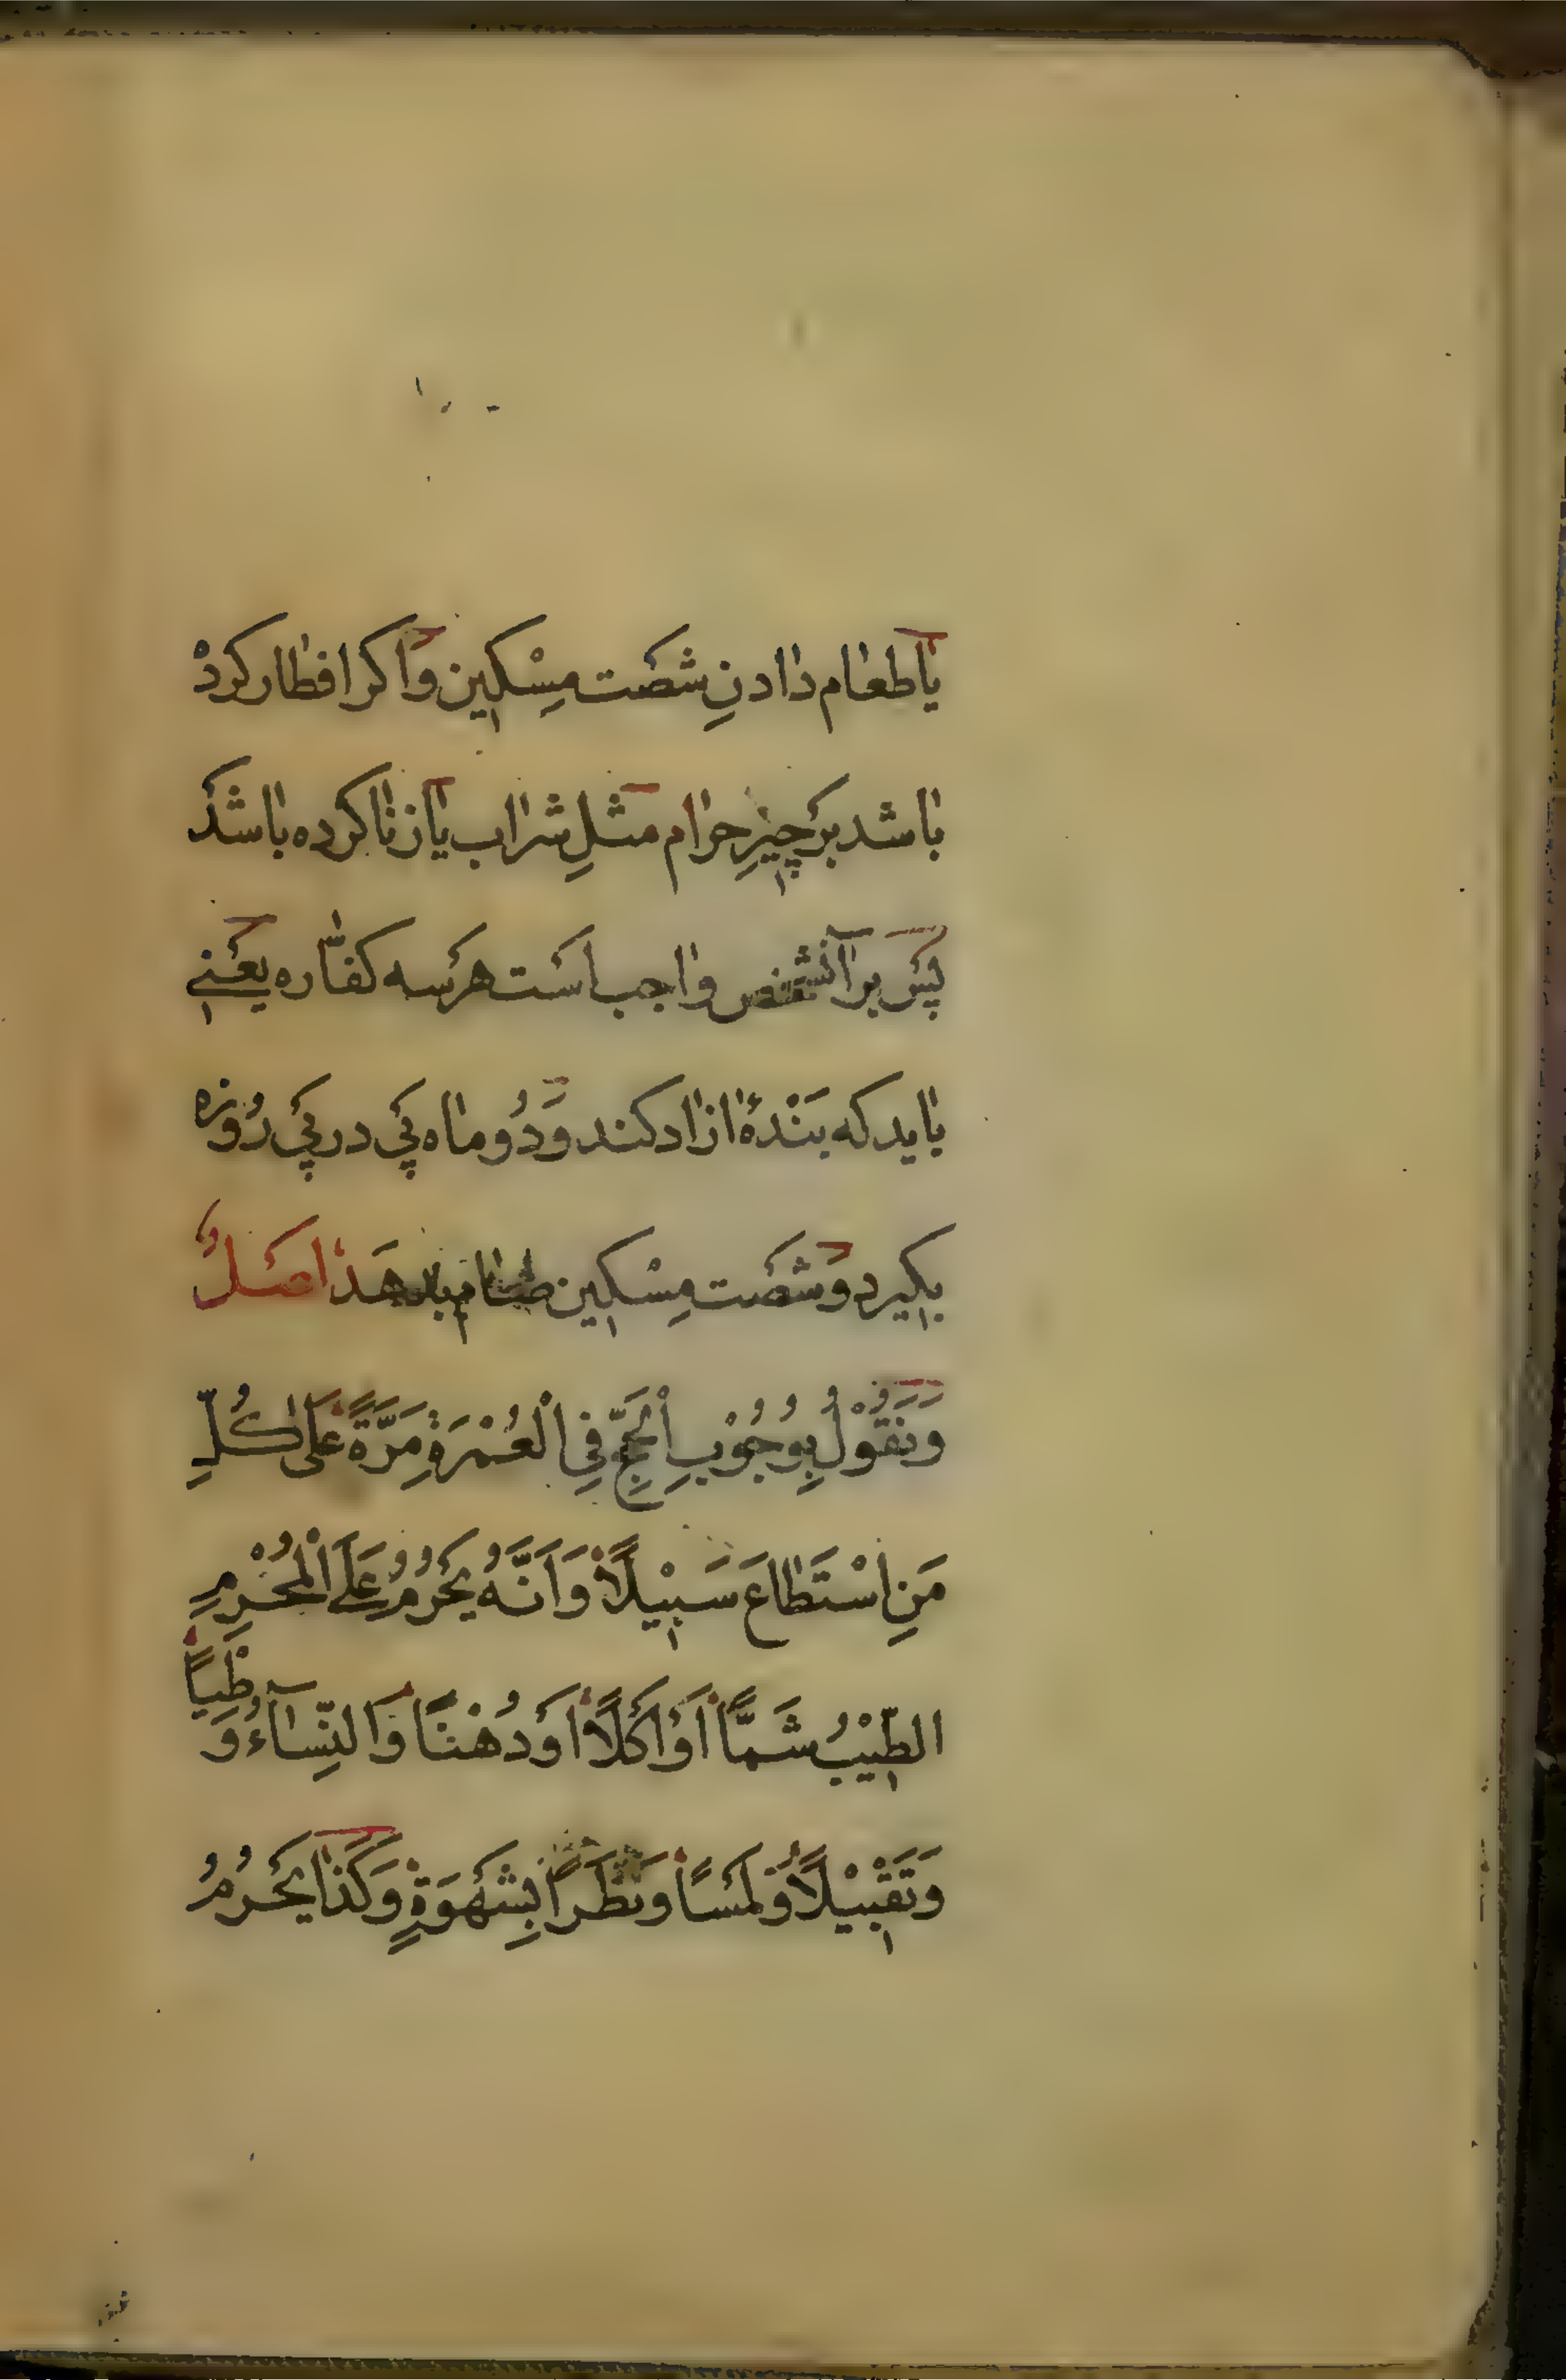 یا طعام دادنِ شصَت مِسْکین واکر افطار کردْ
باشد برَ چیزِ حرام مثلِ شراب یا زنا کرده باشدَ
پسَ بر آنشخص واجب اسَت هرَسه کفّاره یعَنے
باید که بَنْدهٔ ازاد کند وَدُوماه پَی در پَی رُوزه
بکیرد و شصَت مِسْکین طعام بدهد هَذا اصَلٌ
وَنَقُوْلُ بِوُجُوْبِ اْلحَجِّ فِي اْلعُمْرَةِ مَرَّةً عَلَىٰ كُلِّ
مَنِ اسْتَطَاعَ سَبِيْلًا وَاَنَّهُ يَحَرُمُ عَلَے اْلمُحْرِمِ
الطِّيْبُ شَمًّا اَوَ اَكَلًا اَوَ دُهْنًا وَالنِّسَآءُ وَ وَطْيًا
وَتَقْبِيْلًا وَلَمَسًا وَنَظَرًا بِشَهَوَةٍ وَكَذَا يَحَرُمُ